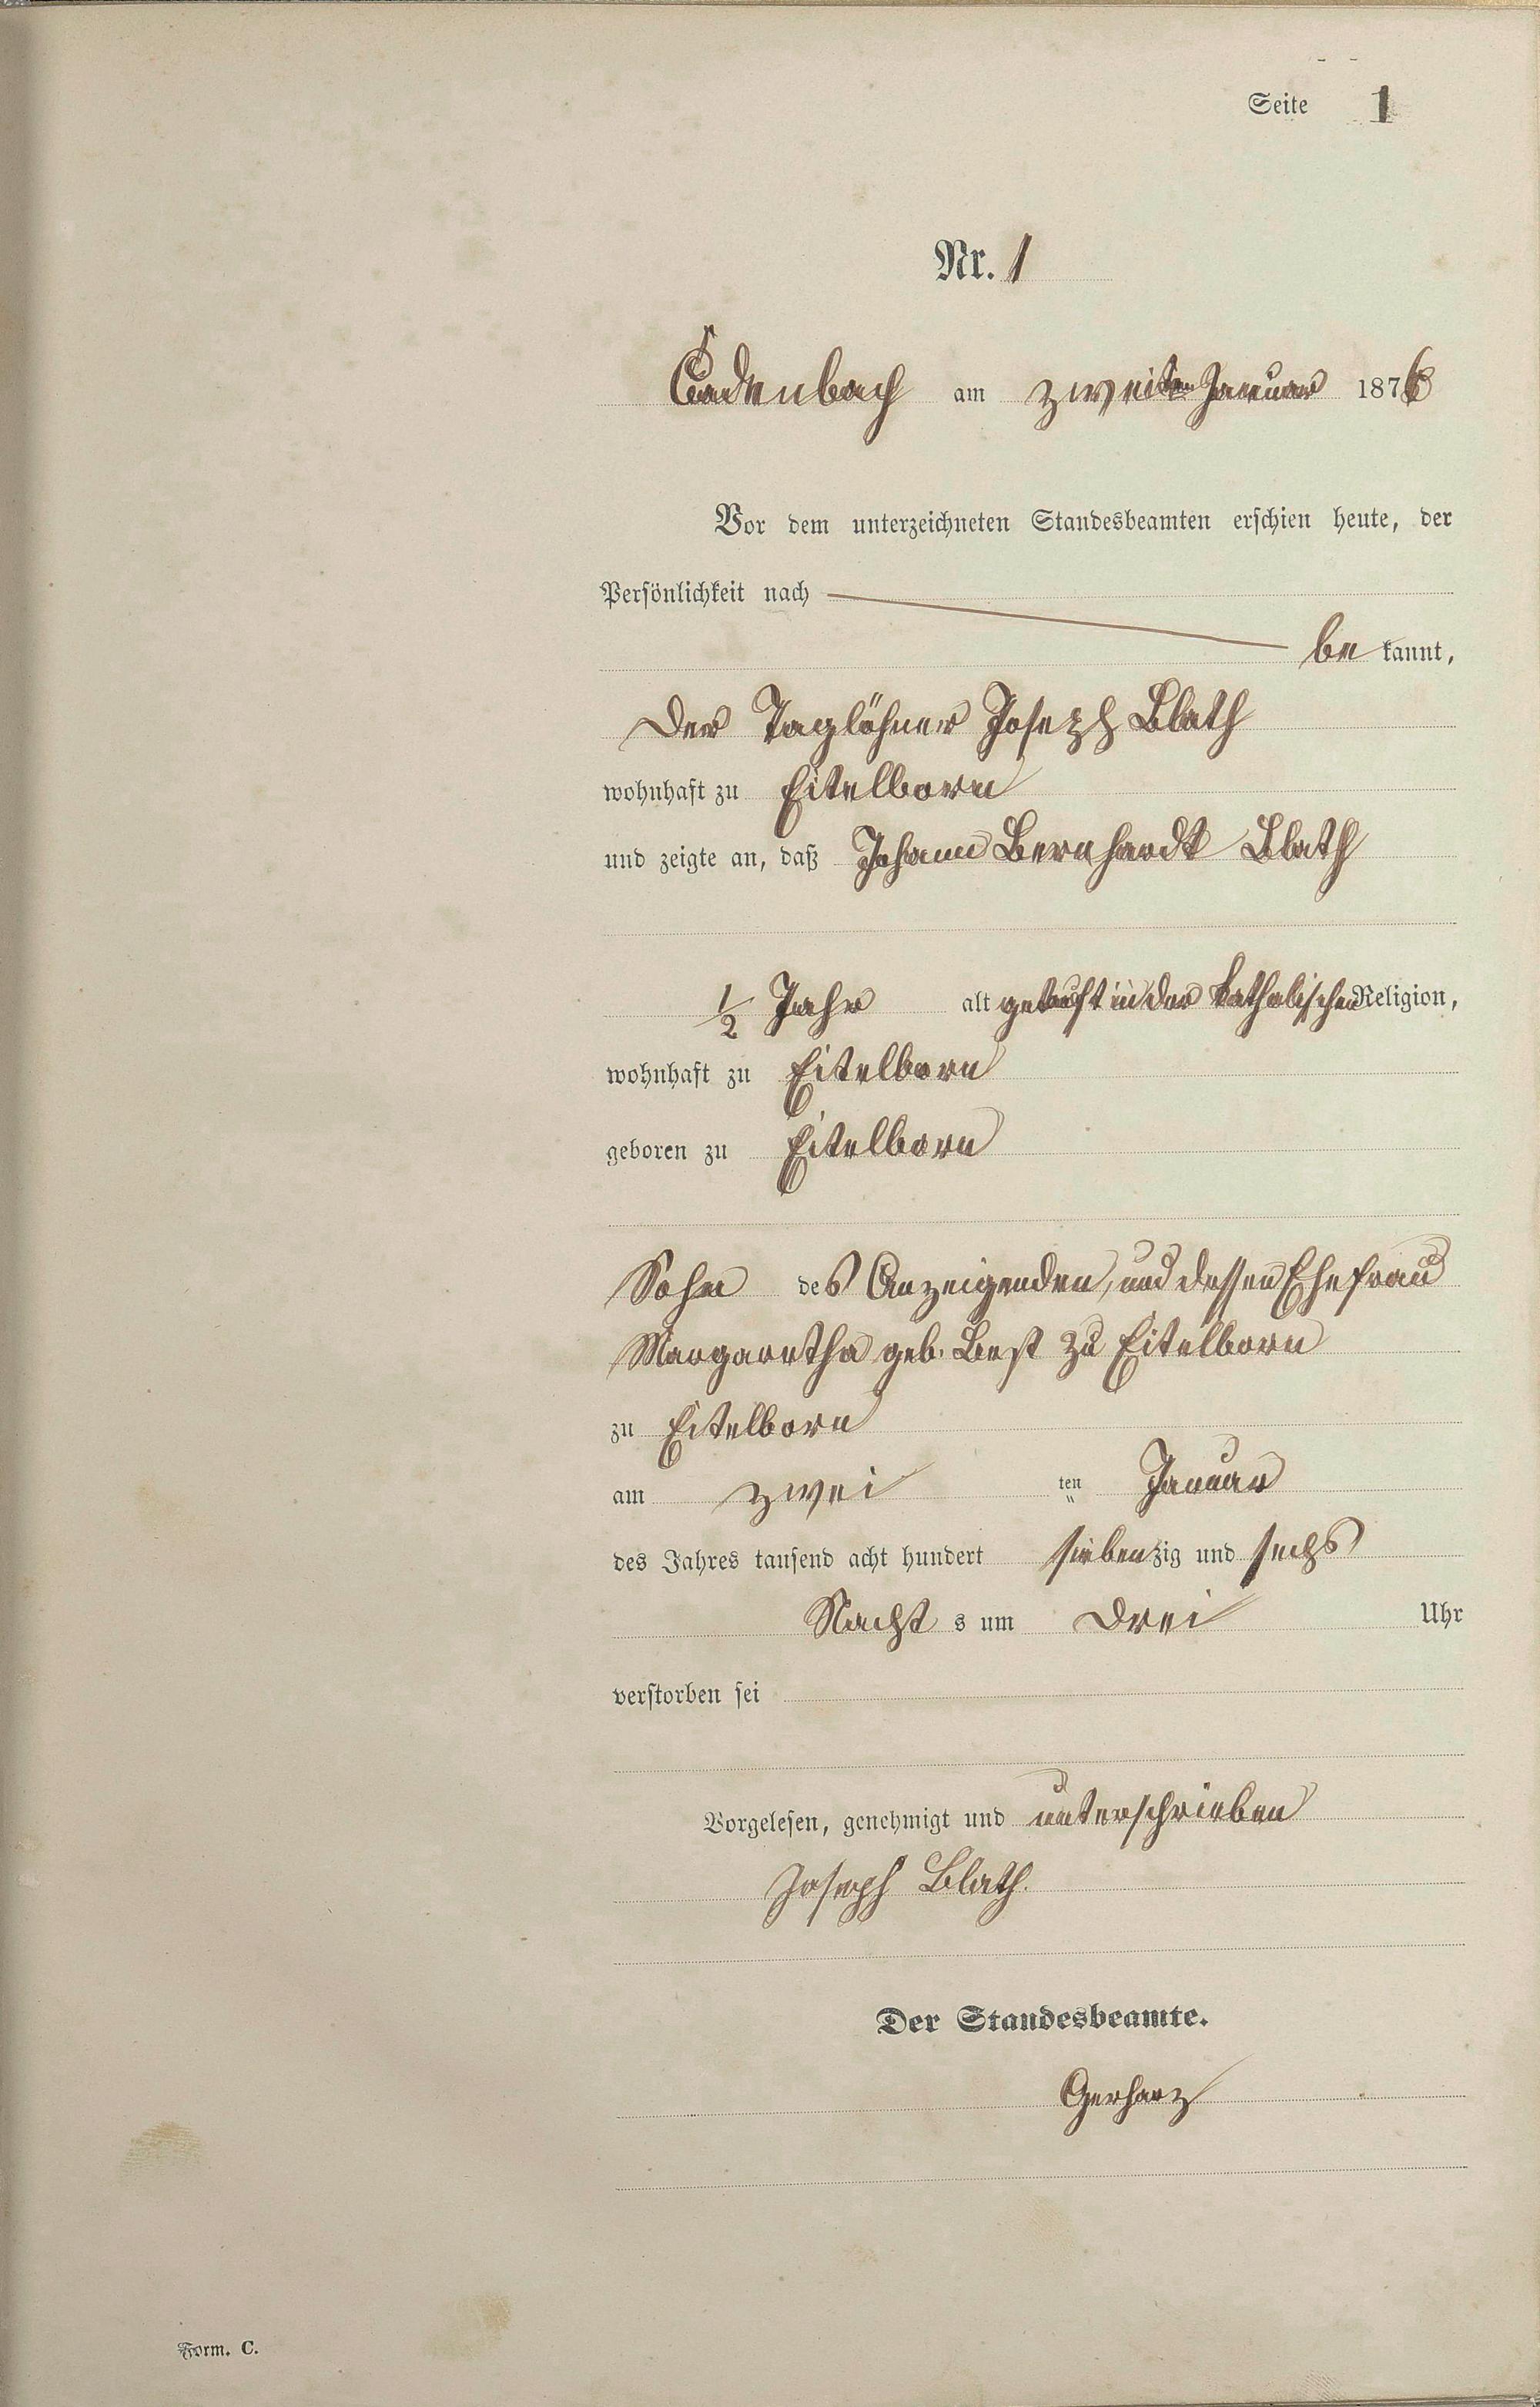 Seite 1
Nr. 1
Cadenbach am zweiten Januar 1876
Vor dem unterzeichneten Standesbeamten erschien heute, der
Persönlichkeit nach
be kannt,
der Taglöhner Joseph Blath
wohnhaft zu Eitelborn
und zeigte an, daß Johann Bernhardt Blath
1/2 Jahr alt getauft in der katholischen Religion,
wohnhaft zu Eitelborn
geboren zu Eitelborn
Sohn des Anzeigenden, und dessen Ehefrau
Margaretha geb. Best zu Eitelborn
zu Eitelborn
am zwei ten Januar
des Jahres tausend acht hundert siebenzig und sechs
Nacht s um drei Uhr
verstorben sei
Vorgelesen, genehmigt und unterschrieben
Joseph Blath.
Der Standesbeamte.
Gerharz
Form. C.